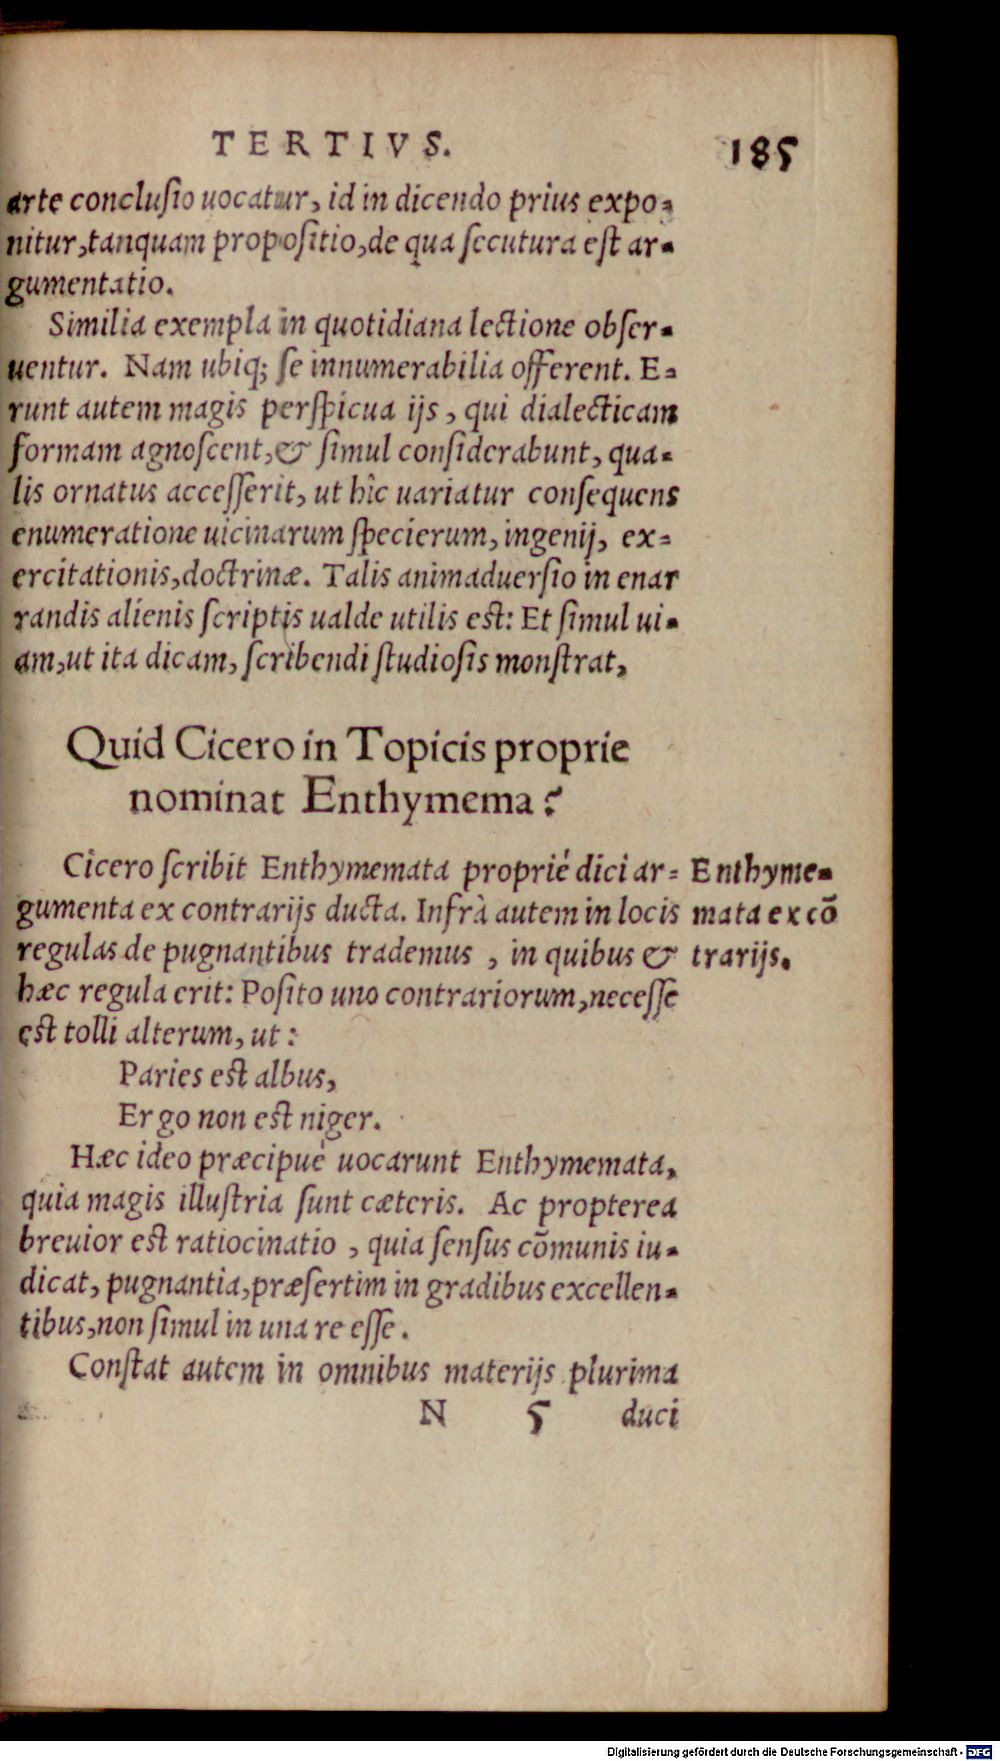 TERTIVS. 185
arte conclusio uocatur, id in dicendo prius expo-
nitur, tanquam propositio, de qua secutura est ar-
gumentatio.
Similia exempla in quotidiana lectione obser-
uentur. Nam ubiq; se innumerabilia offerent. E-
runt autem magis perspicua ijs, qui dialecticam
formam agnoscent, & simul considerabunt, qua-
lis ornatus accesserit, ut hîc uariatur consequens
enumeratione uicinarum specierum, ingenij, ex-
ercitationis, doctrinæ. Talis animaduersio in enar
randis alienis scriptis ualde utilis est: Et simul ui-
am, ut ita dicam, scribendi studiosis monstrat,
Quid Cicero in Topicis proprie
nominat Enthymema?
Cicero scribit Enthymemata proprié dici ar-
gumenta ex contrarijs ducta. Infrà autem in locis
regulas de pugnantibus trademus, in quibus &
hæc regula erit: Posito uno contrariorum, necesse
est tolli alterum, ut:
Enthyme-
mata ex cō
trarijs.
Paries est albus,
Ergo non est niger.
Hæc ideo præcipuè uocarunt Enthymemata,
quia magis illustria sunt cæteris. Ac propterea
breuior est ratiocinatio, quia sensus cōmunis iu-
dicat, pugnantia, præsertim in gradibus excellen-
tibus, non simul in una re esse.
Constat autem in omnibus materijs plurima
N 5 duci
Digitalisierung gefördert durch die Deutsche Forschungsgemeinschaft - DFG